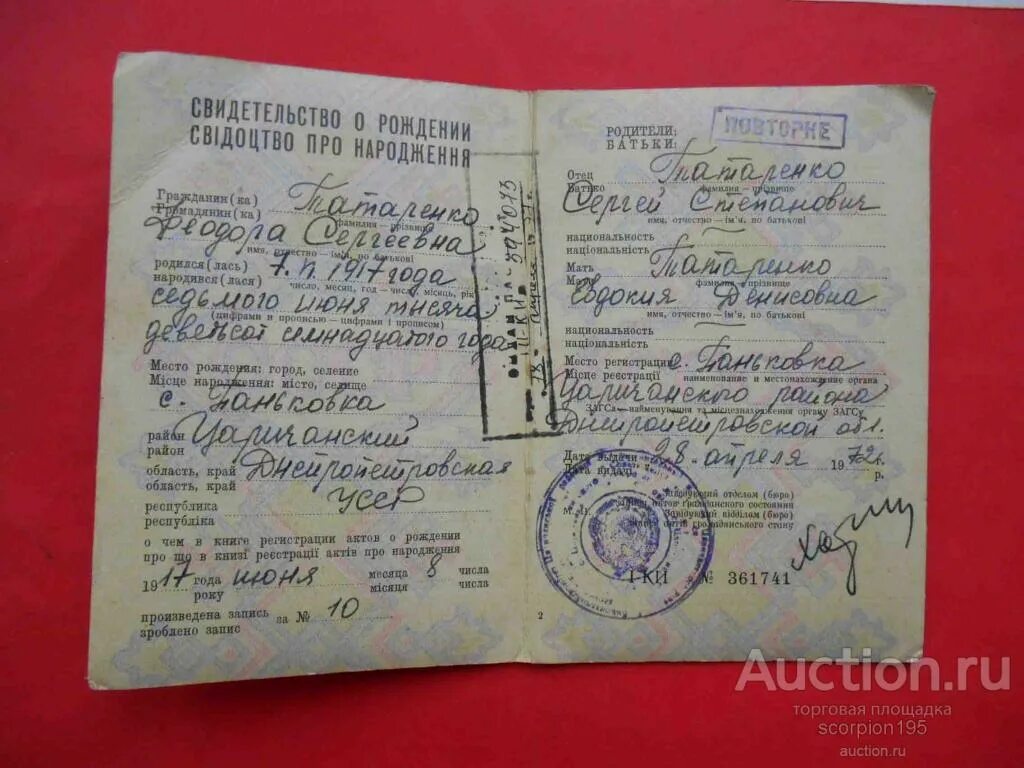 СВИДЕТЕЛЬСТВО О РОЖДЕНИИ
СВІДОЦТВО ПРО НАРОДЖЕННЯ
Гражданин(ка)
Громадянин(ка)
Татаренко
фамилия — прізвище
Феодора Сергеевна
имя, отчество — ім'я, по батькові
родился(лась)
народився(лася)
7. VI. 1917 года
число, месяц, год — число, місяць, рік
седьмого июня тысяча
(цифрами и прописью — цифрами і прописом)
девятьсот семнадцатого года
Место рождения: город, селение
Місце народження: місто, селище
с. Паньковка
район
район
Царичанский
область, край
область, край
Днепропетровская
республика
республіка
УССР
о чем в книге регистрации актов о рождении
про що в книзі реєстрації актів про народження
1917 года июня месяца 8 числа
року місяця числа
произведена запись за № 10
зроблено запис
594073
ПОВТОРНЕ
РОДИТЕЛИ:
БАТЬКИ:
Отец
Батько
Татаренко
фамилия — прізвище
Сергей Степанович
имя, отчество — ім'я, по батькові
национальность
національність
Мать
Мати
Татаренко
фамилия — прізвище
Евдокия Денисовна
имя, отчество — ім'я, по батькові
национальность
національність
Место регистрации
Місце реєстрації
с. Паньковка
наименование и местонахождение органа
Царичанского района
ЗАГСа — найменування та місцезнаходження органу ЗАГСу
Днепропетровской обл.
Дата выдачи
Дата видачі
28 апреля 1972 г.
р.
Заведующий отделом (бюро)
записи актов гражданского состояния
Завідуючий відділом (бюро)
записів актів громадянського стану
І-КИ № 361741
2
Auction.ru
торговая площадка
scorpion195
auction.ru